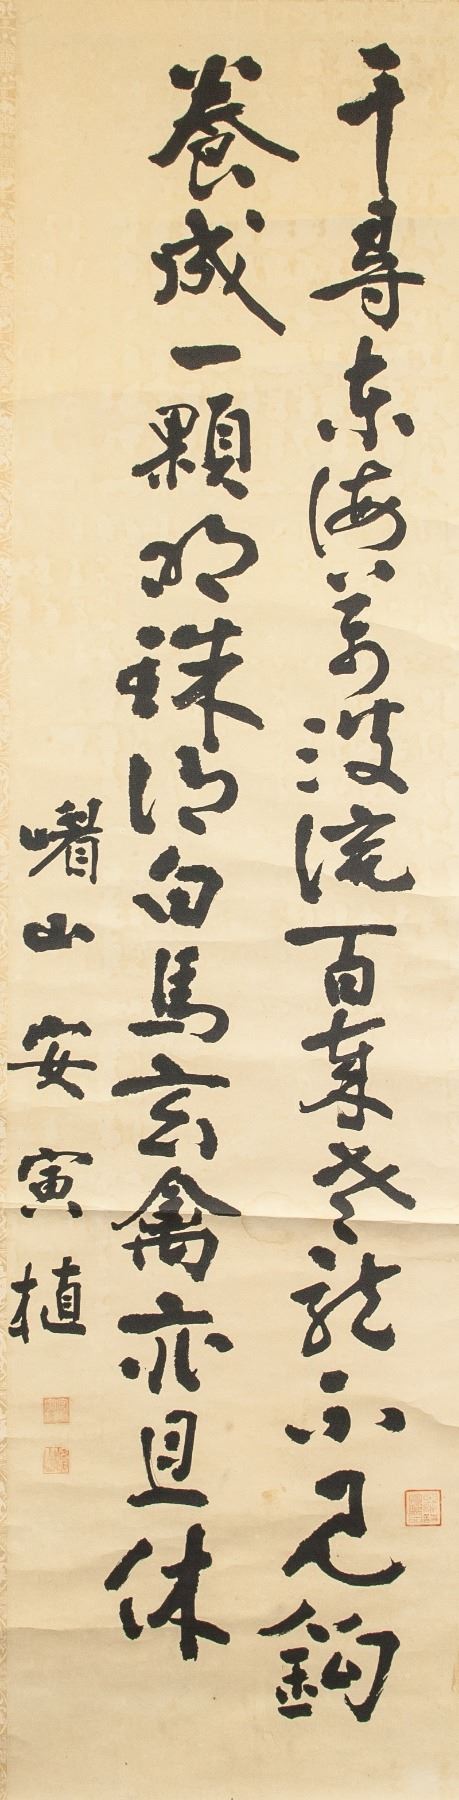 千尋東海萬波流百年老龍不見鈎
養成一顆明珠得白馬玄禽亦且休
曙山安寅植